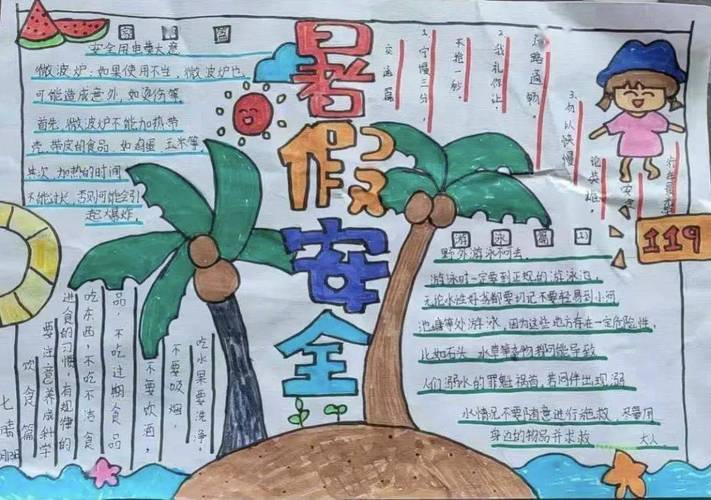 安全用电莫大意
微波炉：如果使用不当，微波炉也
可能造成意外，如烫伤等
首先，微波炉不能加热带
壳、带皮的食品，如鸡蛋、玉米等
其次，加热的时间
不能过长，否则可能会引
起爆炸。
暑假安全
交通篇
1、宁慢三分，
不抢一秒。
2、我礼你让，
道路通畅。
3、勿以快慢
论英雄，
119
游泳篇
野外游泳不可去。
游泳时一定要到正规的游泳池，
无论水性好否都要切记不要轻易到小河
池塘等处游泳，因为这些地方存在一定危险性，
比如石头、水草等事物都可能导致
人们溺水的罪魁祸首，若同伴出现溺
水情况不要随意进行施救，尽量用
身边的物品并求救
大人。
饮食篇
要注意养成科学
进食的习惯，有规律的
吃东西，不吃不洁食
品，不吃过期食品
不要饮酒，
不要吸烟，
吃水果要洗净。